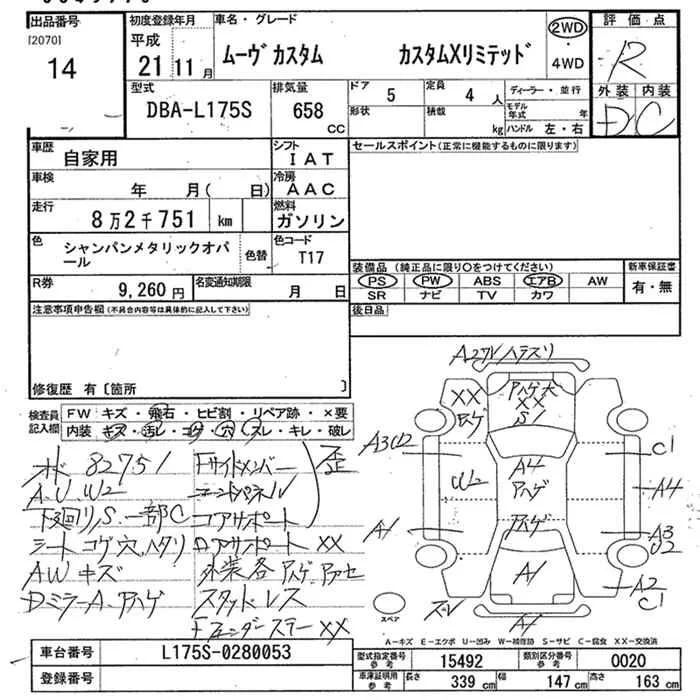 出品番号
[2070]
14
初度登録年月
平成
21年 11月
車名・グレード
ムーヴカスタム カスタムXリミテッド
2WD
・
4WD
評価点
R
外装 内装
D C
型式
DBA-L175S
排気量
658 CC
ドア 5
形状
定員 4 人
積載 kg
ディーラー・並行
モデル年式 年
ハンドル 左・右
車歴 自家用
シフト IAT
車検 年 月( 日)
冷房 AAC
走行 8万2千751 km
燃料 ガソリン
色 シャンパンメタリックオパール
色替
色コード T17
R券 9,260円
名変通知期限 月 日
セールスポイント(正常に機能するものに限ります)
装備品 (純正品に限り○をつけてください)
PS PW ABS エアB AW
SR ナビ TV カワ
新車保証書
有・無
後日品
注意事項申告欄(不具合内容等は具体的に記入して下さい)
修復歴 有〔箇所 〕
検査員記入欄
FW キズ・飛石・ヒビ割・リペア跡・×要
内装 キズ・汚レ・コゲ・穴・スレ・キレ・破レ
82751
A.U.W2
下廻リ/S.一部C
シート コゲ穴.ヘタリ
AW キズ
DミラーA.アハゲ
Fサイドメンバー
コアサポート
ロアサポート XX
外装各アハゲ.アセ
スタッドレス
Fフェンダーステー XX
歪
XX
アハゲ大
XX
S1
A3U2
C1
W2
A4
アハゲ
A4
アハゲ
A1
A3
U2
A1
A2
C1
スペア
A-キズ E-エクボ U-凹み W-補修跡 S-サビ C-腐食 XX-交換済
車台番号 L175S-0280053
登録番号
型式指定番号 参考 15492
類別区分番号 参考 0020
車庫証明用 参考 長さ 339 cm 幅 147 cm 高さ 163 cm